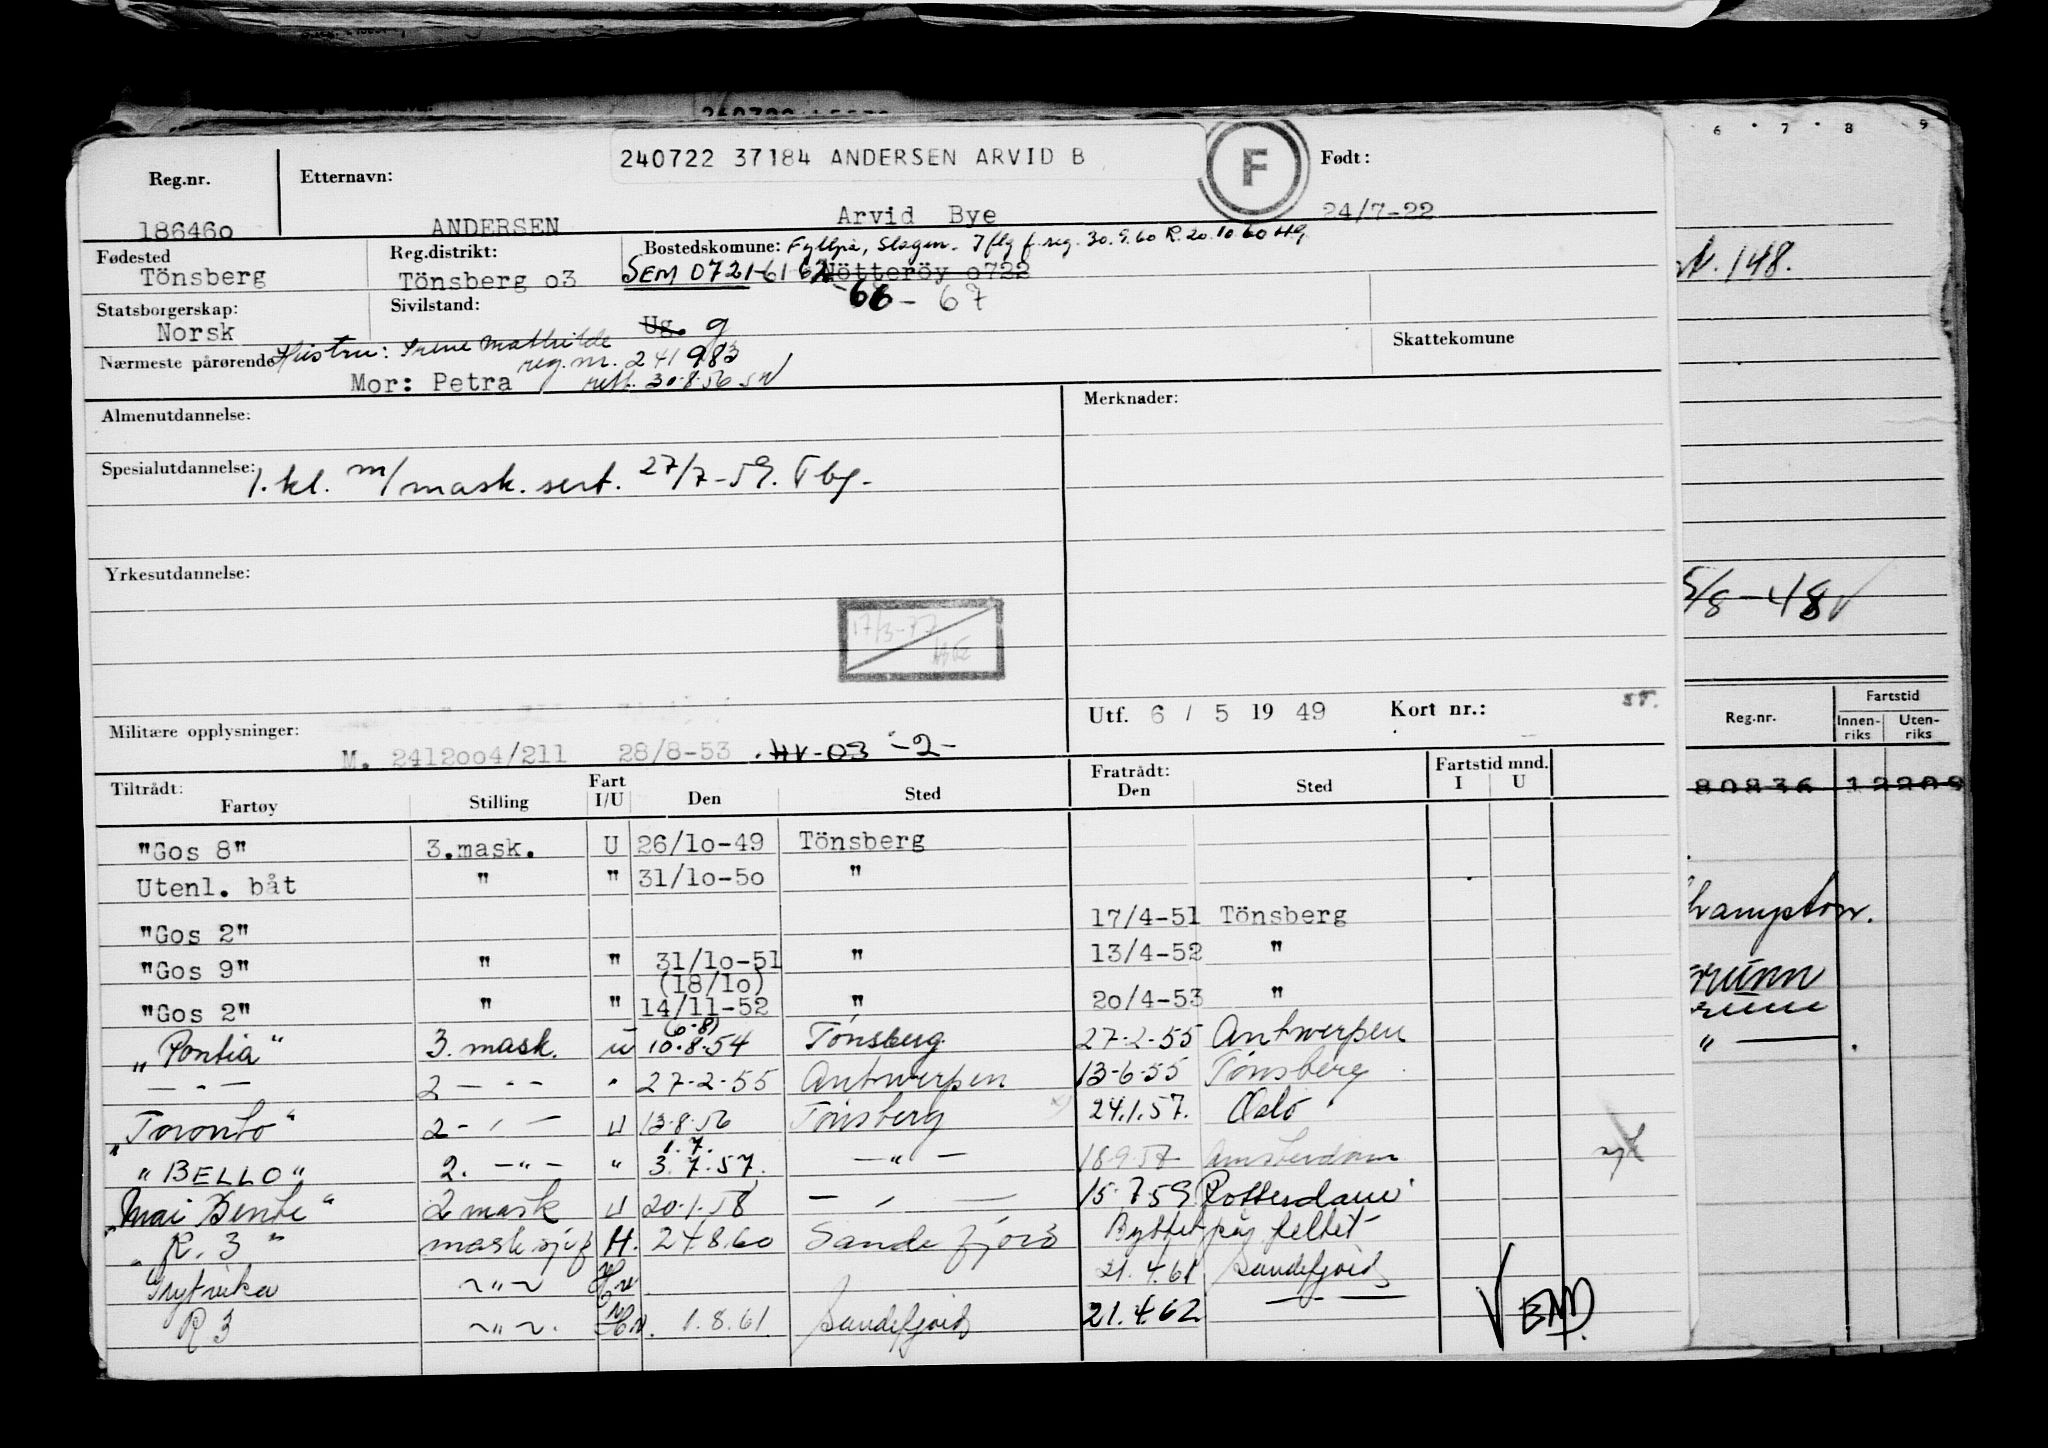 240722 37184 ANDERSEN ARVID B
F
Reg.nr. Etternavn: Født:
186460 ANDERSEN Arvid Bye 24/7-22
Fødested Reg.distrikt: Bostedskomune: Fyllpå, Slagen. Iflg f.reg. 30.9.60 R. 20.10.60 H.g.
Tönsberg Tönsberg o3 SEM 0721-61 62 Nötteröy o722
-66 - 67
Statsborgerskap: Sivilstand:
Norsk Ug. g
Skattekomune
Nærmeste pårørende Hustru: Irene Mathilde
reg.nr. 241983
Mor: Petra rett. 30.8.56
Almenutdannelse: Merknader:
Spesialutdannelse: 1. kl. m/mask. sert. 27/7-59. Tbg.
Yrkesutdannelse:
17/3-77
Utf. 6 / 5 19 49 Kort nr.:
Militære opplysninger:
M. 2412oo4/211 28/8-53 HV-03 -2-
Tiltrådt: Fart Fratrådt: Fartstid mnd.
Fartøy Stilling I/U Den Sted Den Sted I U
"Gos 8" 3.mask. U 26/1o-49 Tönsberg
Utenl. båt " " 31/1o-5o "
"Gos 2" 17/4-51 Tönsberg
"Gos 9" " " 31/1o-51 " 13/4-52 "
(18/1o)
"Gos 2" " " 14/11-52 " 20/4-53 "
(6.8)
"Pontia" 3. mask. u 10.8.54 Tönsberg 27.2.55 Antwerpen
— " — 2 - " - " 27.2.55 Antwerpen 13.6.55 Tönsberg
"Toronto" 2 - " - U 13.8.56 Tönsberg 24.1.57. Oslo
1.7.
"BELLO" 2. - " - " 3.7.57. - " - 18.9.57 Amsterdam
"Mai Bente" 2 mask U 20.1.58 — " — 15.7.59 Rotterdam
"R. 3" masksjef H. 24.8.60 Sandefjord Byttet på feltet
~ " ~ 21.4.61 Sandefjord
R 3 ~ " ~ 1.8.61. Sandefjord 21.4.62 — " —
VEND.
6 7 8 9
148.
5/8-48
Fartstid
Reg.nr. Innen-riks Uten-riks
80836 12209